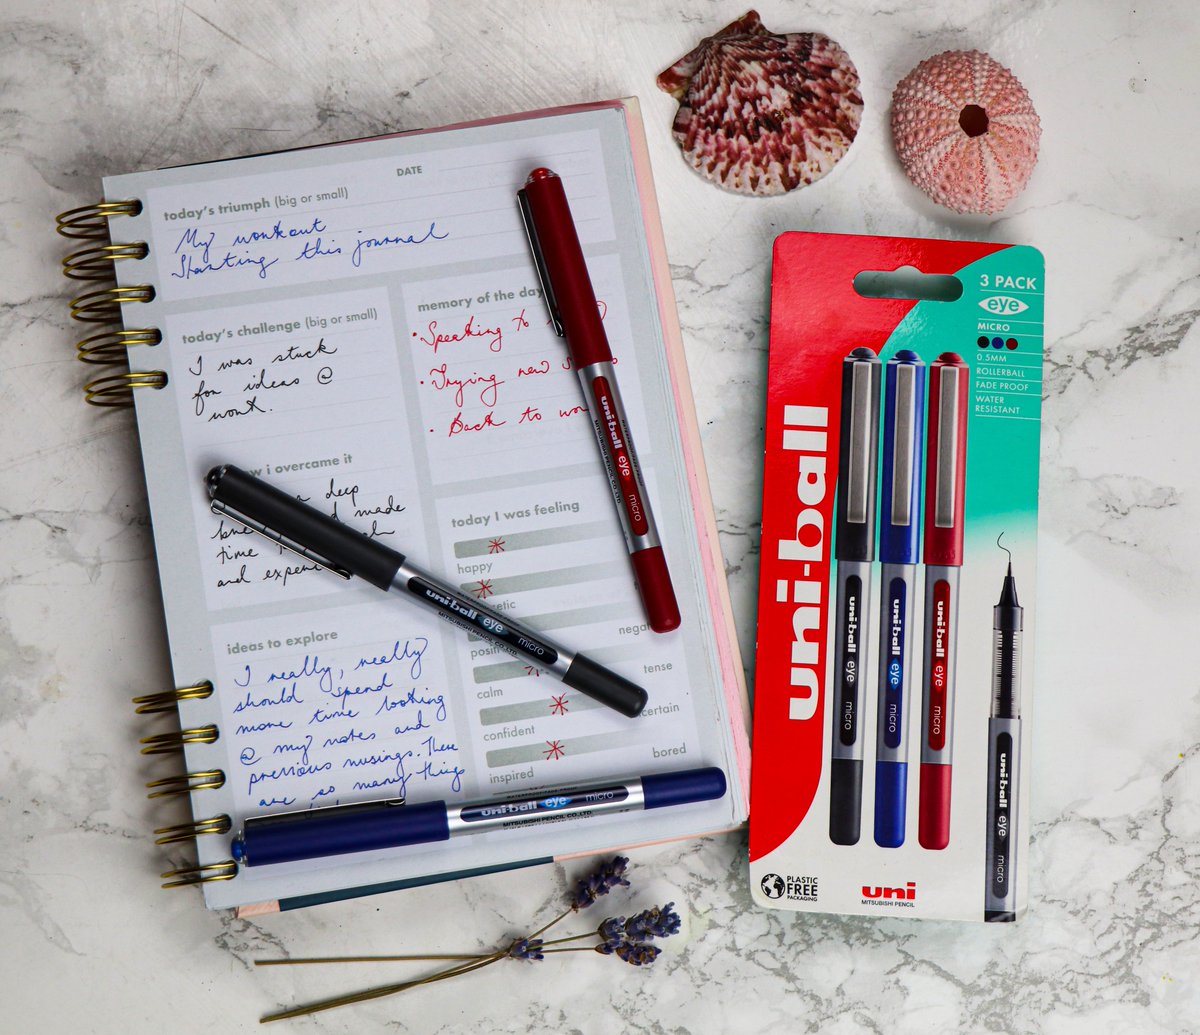 DATE
today's triumph (big or small)
My workout
Starting this journal
today's challenge (big or small)
I was stuck
for ideas @
work.
how i overcame it
deep
made
time
and
ideas to explore
I really, really
should spend
more time looking
@ my notes and
previous musings. There
are so many things
memory of the day
• Speaking to
• Trying new
• Back to
today I was feeling
happy
tense
calm
confident
bored
inspired
uni-ball eye micro
MITSUBISHI PENCIL CO.,LTD.
uni-ball eye micro
MITSUBISHI PENCIL CO.,LTD.
uni-ball eye micro
MITSUBISHI PENCIL CO.,LTD.
3 PACK
eye
MICRO
0.5MM
ROLLERBALL
FADE PROOF
WATER
RESISTANT
uni-ball
uni-ball eye micro
uni-ball eye micro
uni-ball eye micro
uni-ball eye micro
PLASTIC
FREE
PACKAGING
uni
MITSUBISHI PENCIL